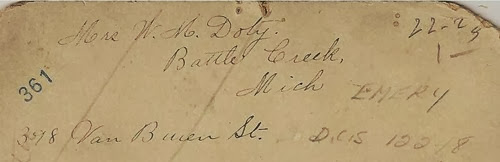 Mrs W. M. Doty.
22-29
1-
Battle Creek,
361
Mich
EMERY
Van Buren St.
D.C.S 122/8